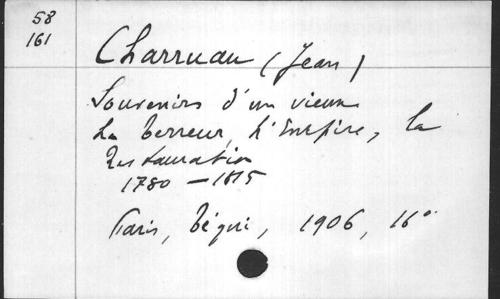 58
161
Charruau (Jean)
Souvenirs d'un vieux
La Terreur, L'Empire, la
Restauration
1780 — 1815
Paris, Téqui, 1906, 16°